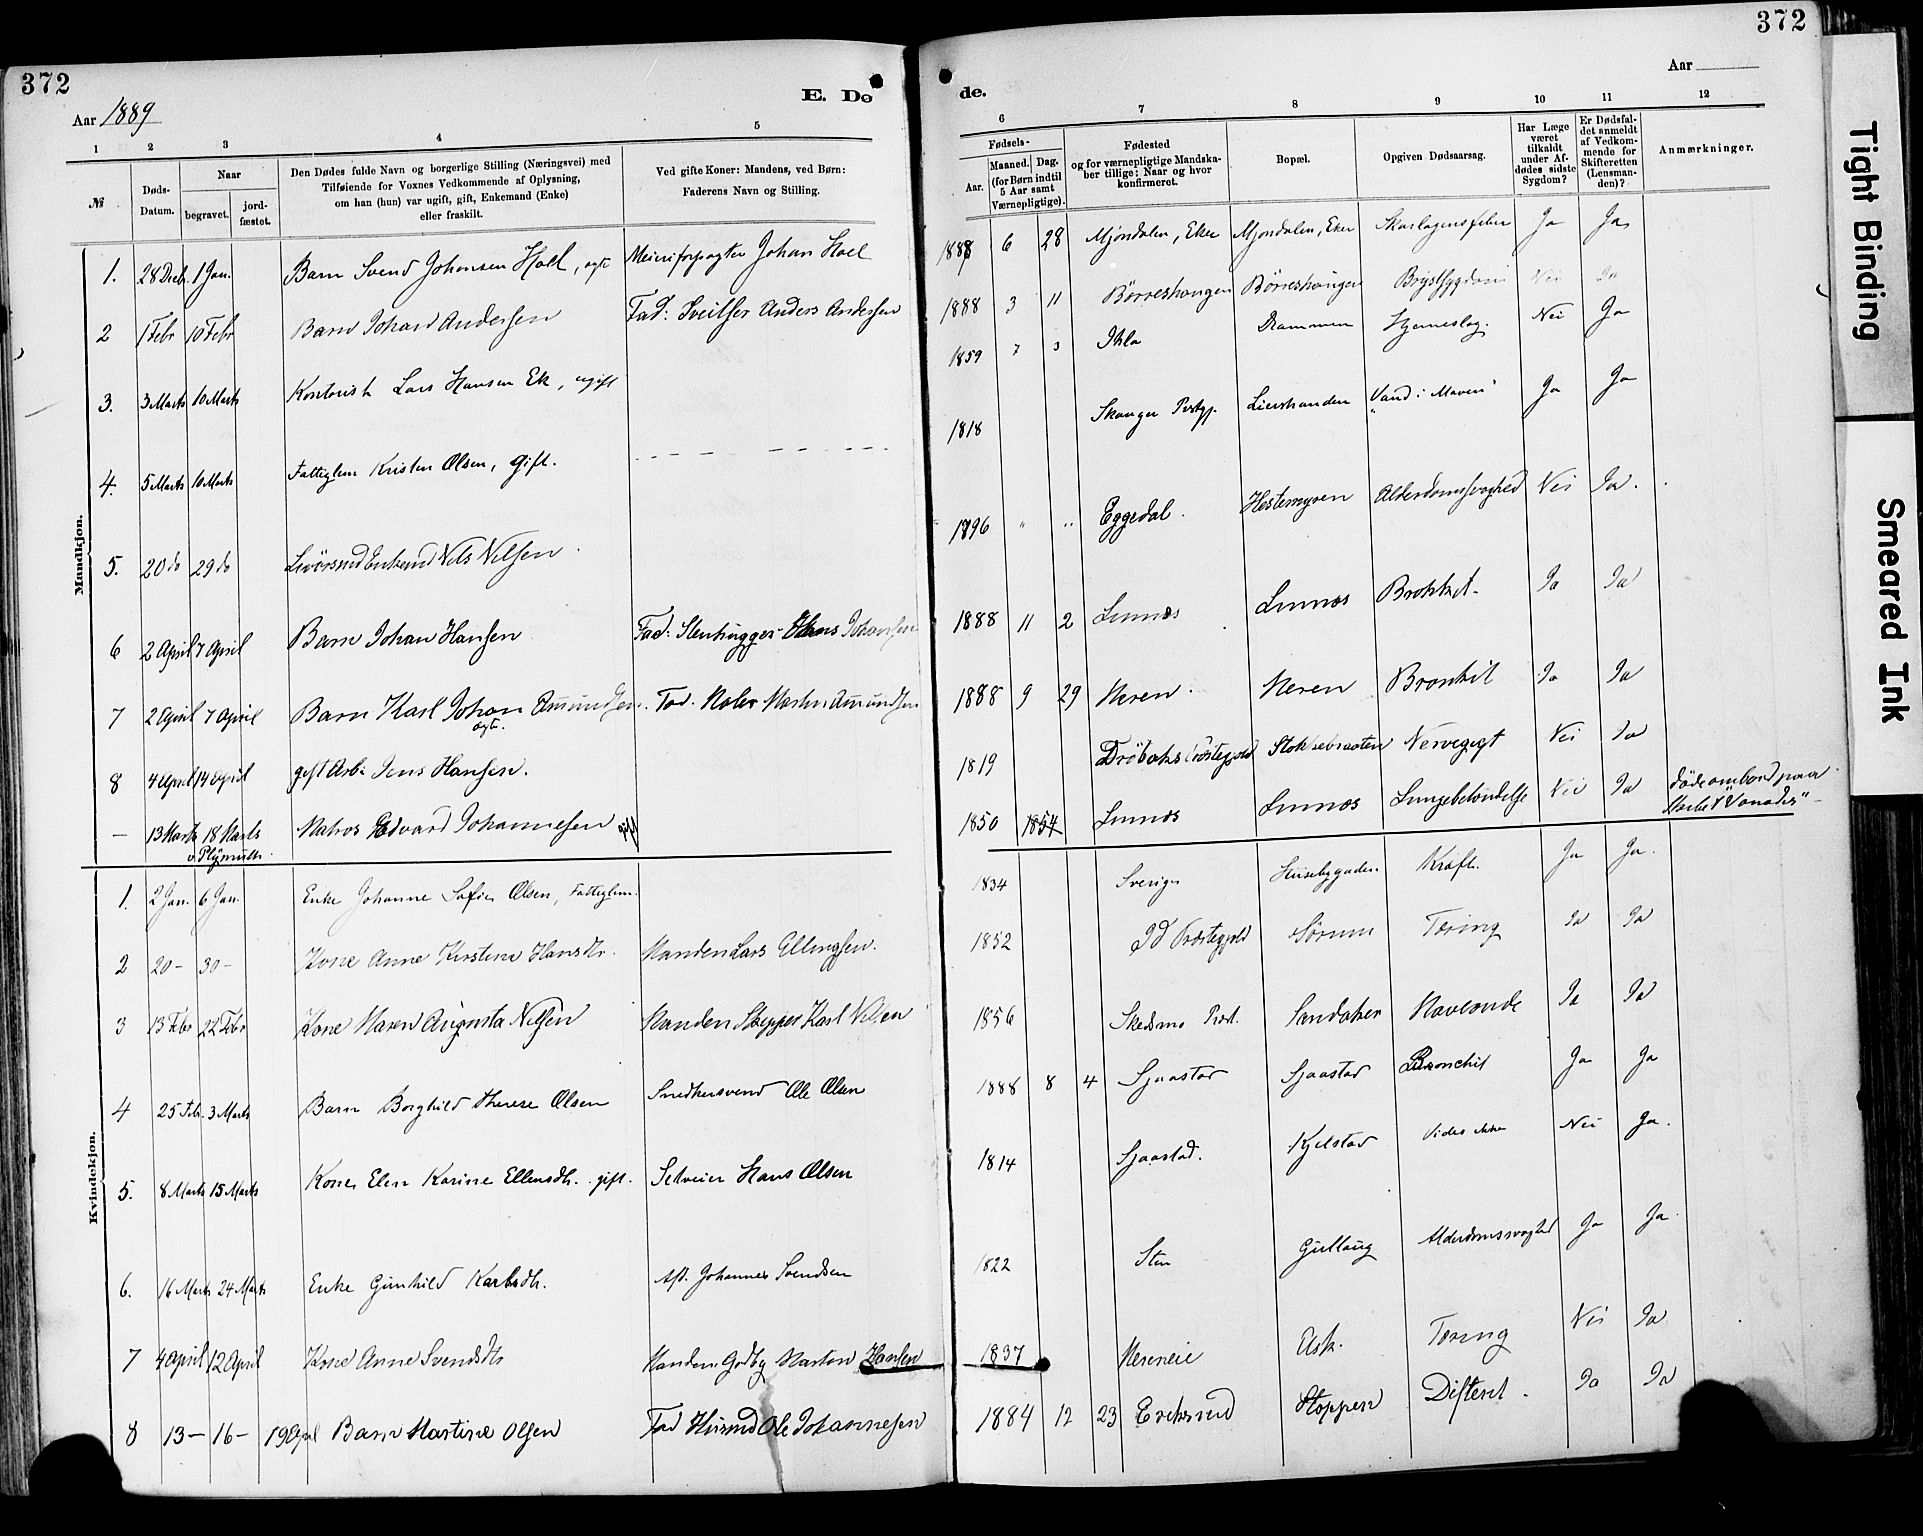 372
372
Aar 1889
E. Dø
de.
Aar
1 2 3 4 5
6 7 8 9 10 11 12
№
Døds-Datum.
Naar
begravet.
jord-fæstet.
Den Dødes fulde Navn og borgerlige Stilling (Næringsvei) med
Tilføiende for Voxnes Vedkommende af Oplysning,
om han (hun) var ugift, gift, Enkemand (Enke)
eller fraskilt.
Ved gifte Koner: Mandens, ved Børn:
Faderens Navn og Stilling.
Fødsels-
Aar.
Maaned. Dag.
(for Børn indtil
5 Aar samt
Værnepligtige).
Fødested
og for værnepligtige Mandska-
ber tillige: Naar og hvor
konfirmeret.
Bopæl.
Opgiven Dødsaarsag.
Har Læge
været
tilkaldt
under Af-
dødes sidste
Sygdom?
Er Dødsfal-
det anmeldt
af Vedkom-
mende for
Skifteretten
(Lensman-
den)?
Anmærkninger.
Mandkjøn.
1. 28 Decb. 1 Jan. Barn Svend Johansen Hoel, ægte Meieriforpagter Johan Hoel 1888 6 28 Mjøndalen, Eker Mjøndalen, Eker Skarlagensfeber Ja Ja
2 1 Febr 10 Febr Barn Johan Andersen Fad: Sveitser Anders Andersen 1888 3 11 Börreshaugen Börreshaugen Brystsygdom Nei Ja
3. 3 Marts 10 Marts Kontorist Lars Hansen Ek, ugift 1859 7 3 Ihla Drammen Hjerneslag. Nei Ja
4. 5 Marts 10 Marts Fattiglem Kristen Olsen, gift. 1818 Skauger Prstgj. Lierstranden "Vand i Maven" Ja Ja
5. 20 do 29 do Enkemd Nils Nilsen 1796 " " Eggedal. Hestemyren Alderdomssvaghed Nei Ja.
6 2 April 7 April Barn Johan Hansen Fad: Stenhugger Hans Johansen 1888 11 2 Linnæs Linnæs Bronkit. Ja Ja
7 2 April 7 April Barn Karl Johan Amundsen. ægte. Fad. Maler Martin Amundsen 1888 9 29 Meren. Meren Bronkit Ja Ja
8 4 April 14 April gift Arb: Jens Hansen. 1819 Dröbaks Præstegjeld Stokkebraaten Nervegigt Nei Ja
— 13 Marts 18 Marts i Plÿmuth. Matros Edvard Johannesen gift 1850 1854 Linnæs Linnæs Lungebetændelse Nei Ja døde ombord paa
Skibet "Vanadis" -
Kvindekjøn.
1. 2 Jan. 6 Jan. Enke Johanne Sofie Olsen, Fattiglem. 1834 Sverige Husebygaden Kræft. Ja Ja.
2 20 - 30 - Kone Anne Kirstine Hansdtr. Manden Lars Ellingsen. 1852 Id Præstegjeld Sörum Tæring Ja Ja
3 13 Febr 22 Febr Kone Maren Augusta Nilsen Manden Skipper Karl Nilsen 1856 Skedsmo Præst. Sandaker Ja Ja
4 25 Feb. 3 Marts Barn Borghild Therese Olsen Snedkersvend Ole Olsen 1888 8 4 Sjaastad Sjaastad Bronchit Ja Ja
5. 8 Marts 15 Marts Kone Elen Karine Ellensdtr. gift. Selveier Hans Olsen 1814 Sjaastad. Kjelstad Vides ikke Nei Ja.
6. 16 Marts 24 Marts Enke Gunhild Karlsdtr. Afd. Johannes Svendsen 1822 Sten Gullaug Alderdomssvaghed Ja Ja.
7 4 April 12 April Kone Anne Svendsdtr Manden Gdbg Marton Hansen 1837 Mereneie Elsk. Tæring Nei Ja
8 13 - 16 - 19 Apl Barn Martine Olsen Fad Husmd Ole Johannesen 1884 12 23 Eriksrud Stoppen Difterit. Ja Ja
Tight Binding
Smeared Ink